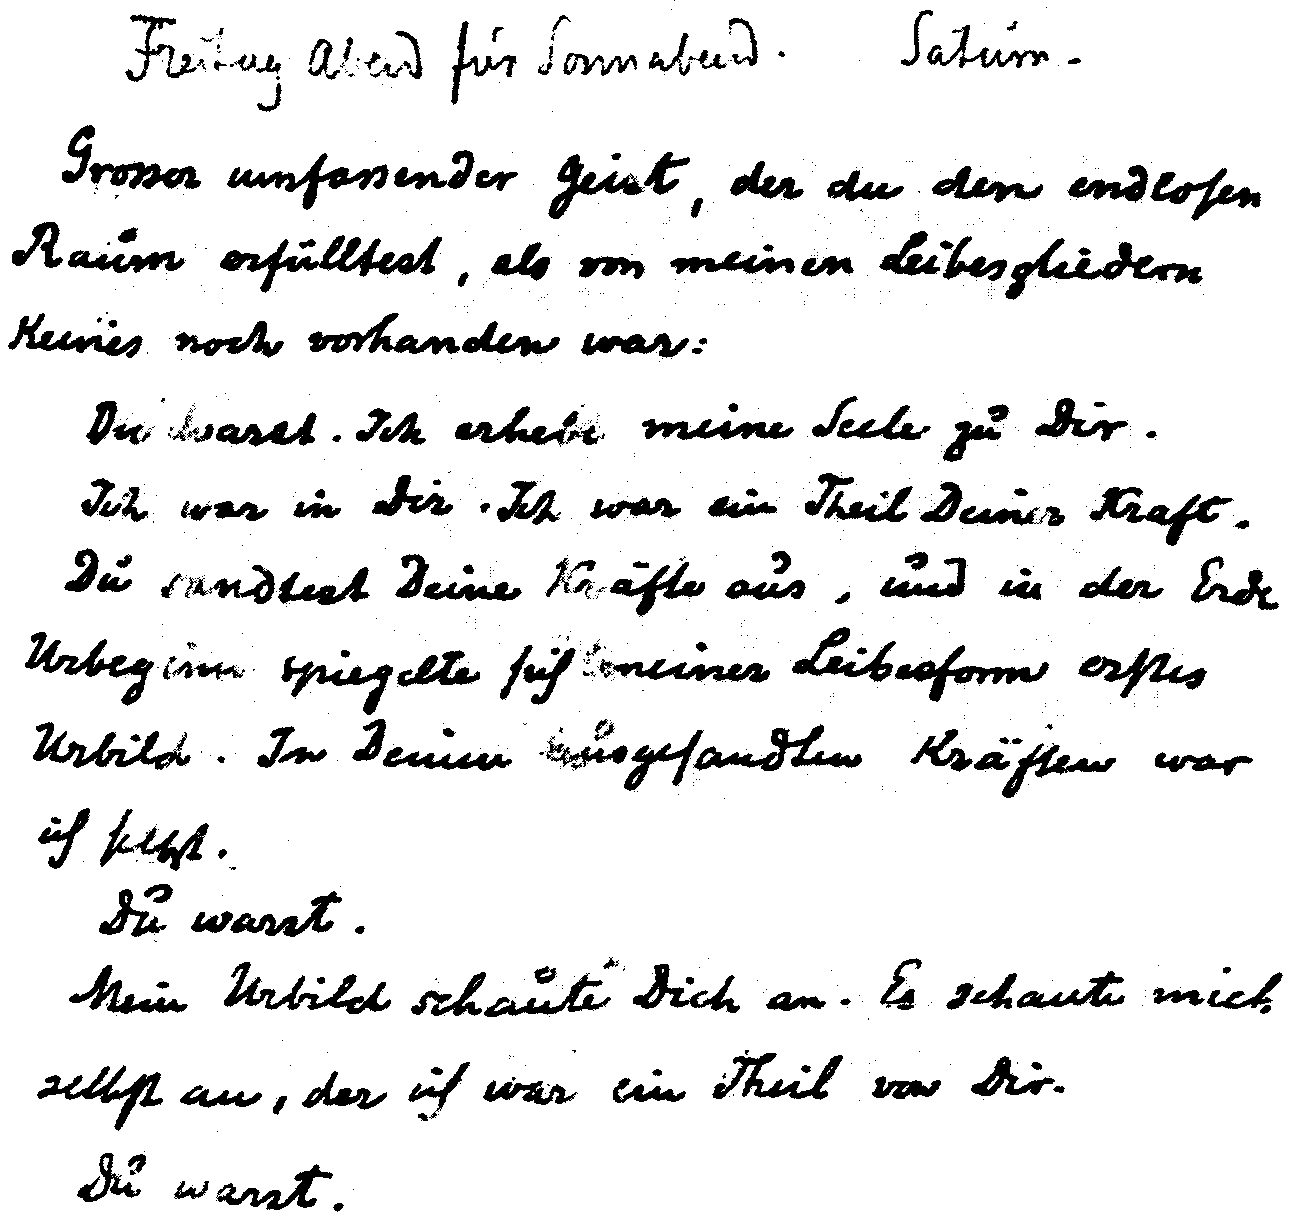 Freitag Abend für Sonnabend. Saturn.
Grosser umfassender Geist, der du den endlosen
Raum erfülltest, als von meinen Leibesgliedern
Keines noch vorhanden war:
Du warst. Ich erhebe meine Seele zu Dir.
Ich war in Dir. Ich war ein Theil Deiner Kraft.
Du sandtest Deine Kräfte aus, und in der Erde
Urbeginn spiegelte sich meiner Leibesform erstes
Urbild. In Deinen ausgesandten Kräften war
ich selbst.
Du warst.
Mein Urbild schaute Dich an. Es schaute mich
selbst an, der ich war ein Theil von Dir.
Du warst.